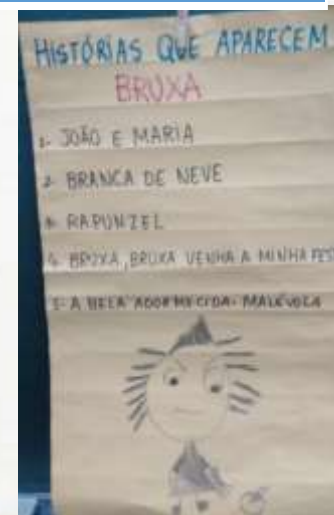 HISTÓRIAS QUE APARECEM
BRUXA
1- JOÃO E MARIA
2- BRANCA DE NEVE
3- RAPUNZEL
4- BRUXA, BRUXA VENHA A MINHA FES
5- A BELA ADORMECIDA- MALÉVOLA